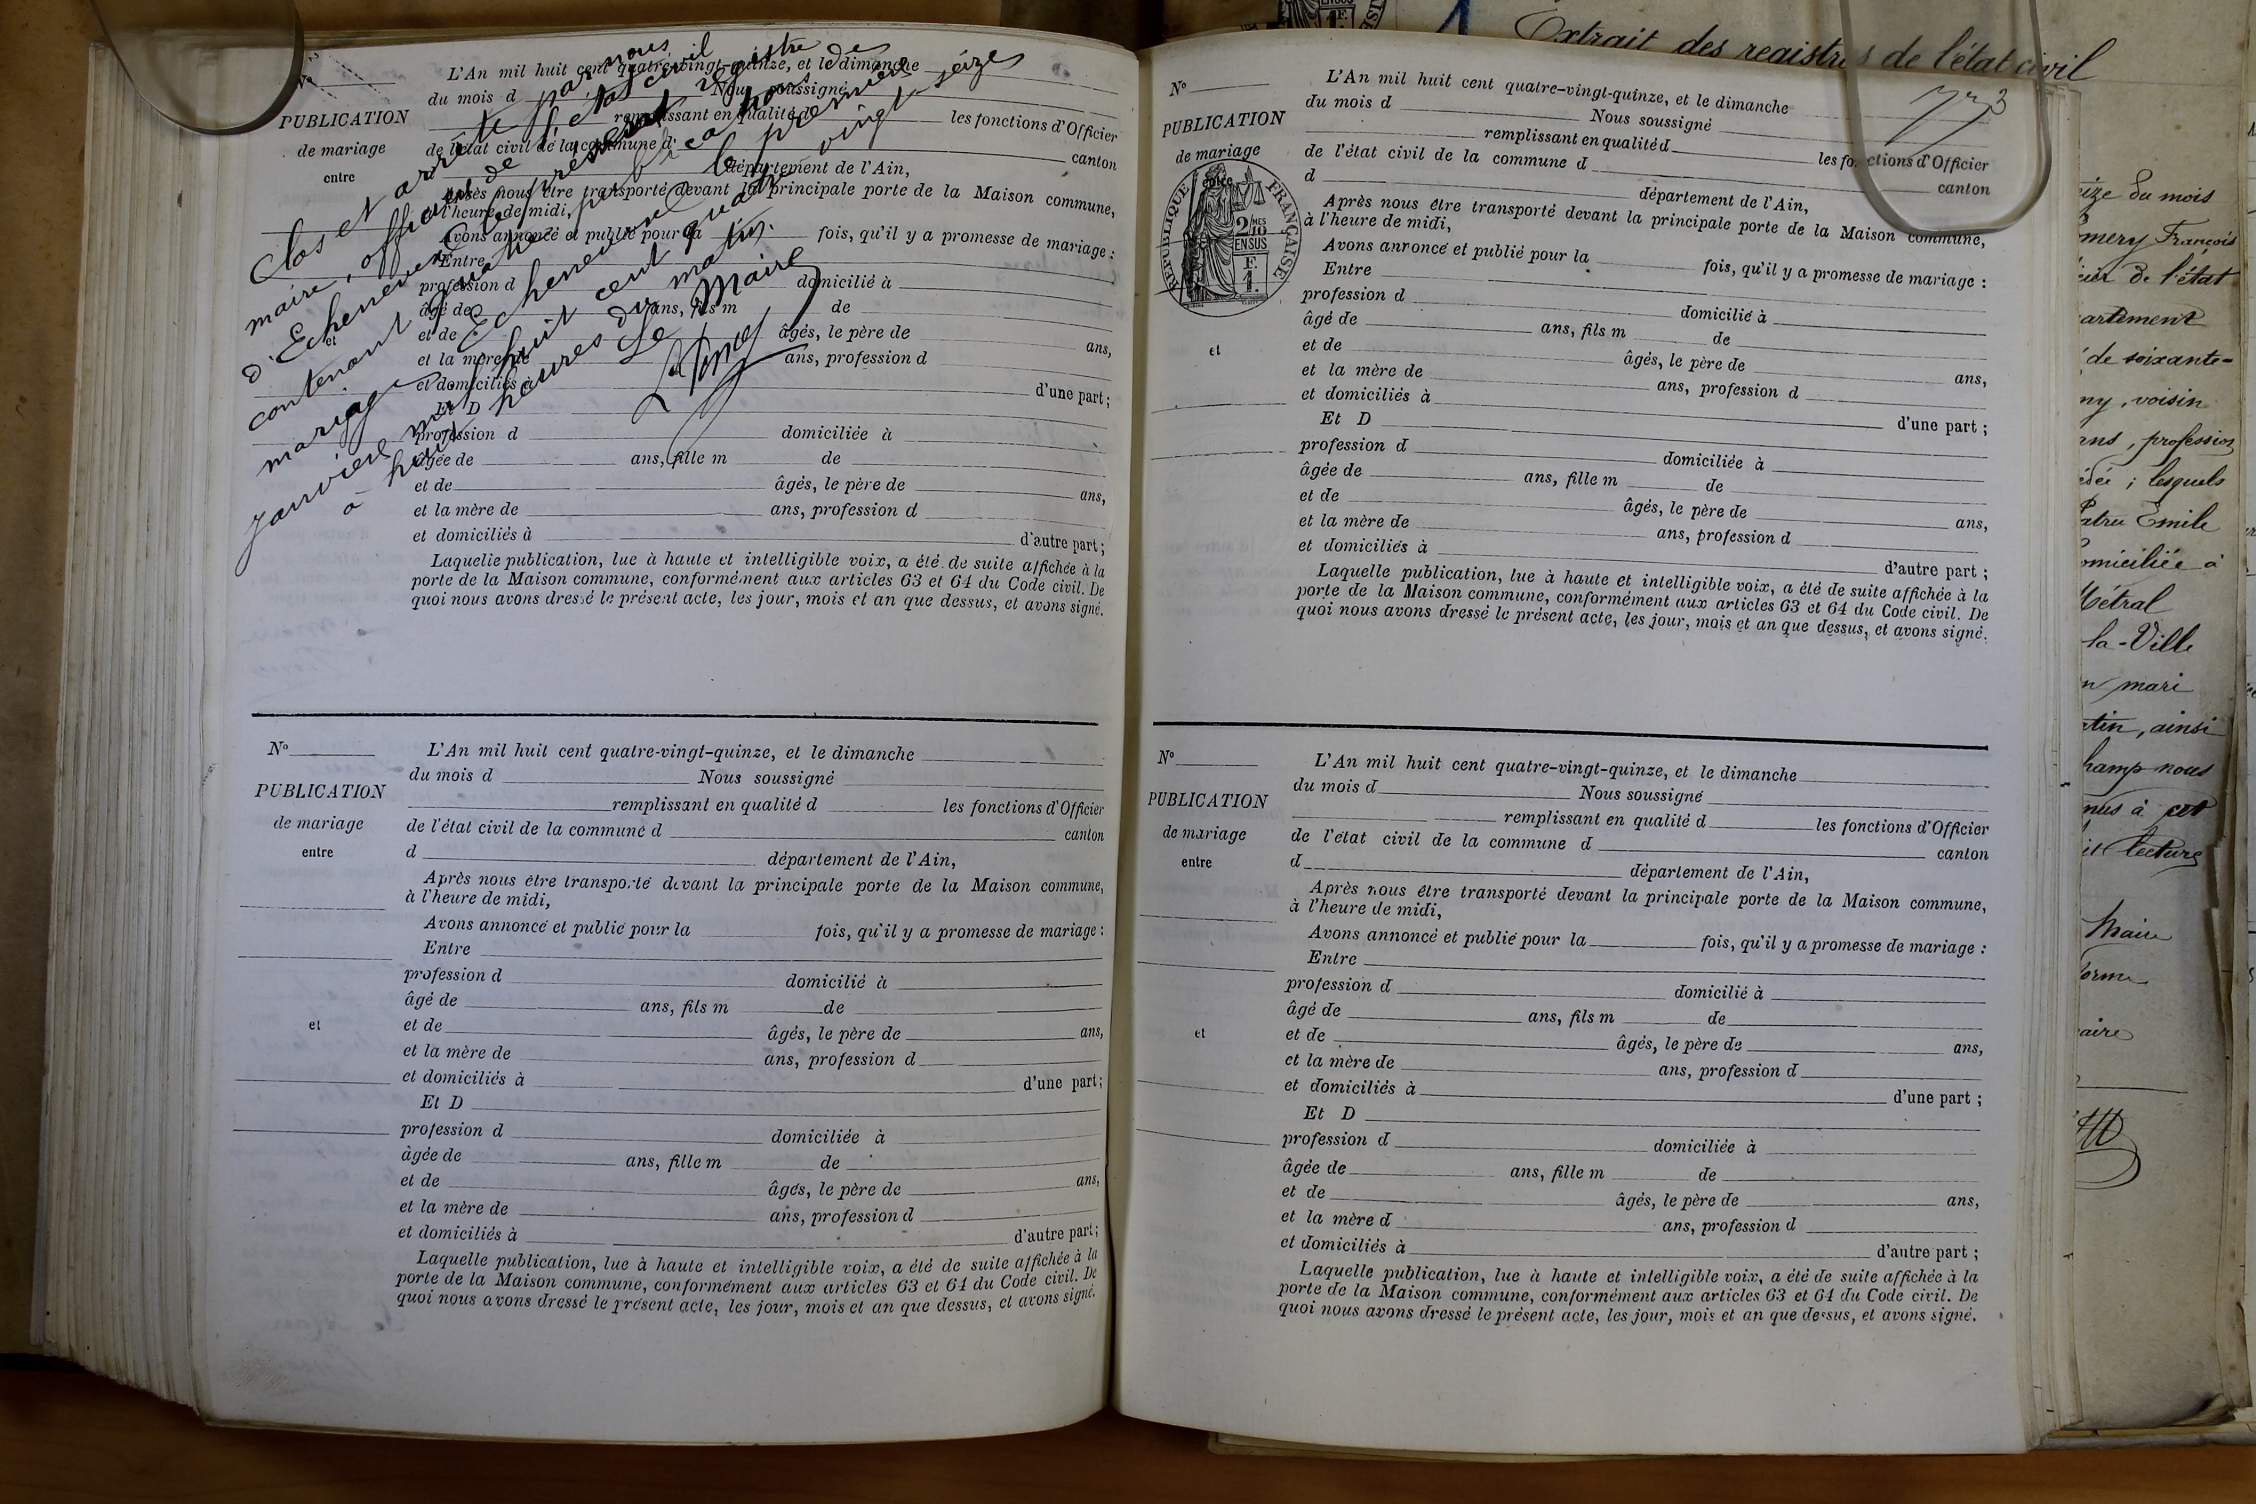 Clos et arrêté par nous
maire, officier de l'état civil
d'Echenevex le présent registre
contenant quatre publications de
mariage Echenevex le premier
janvier mil huit cent quatre vingt-seize
à huit heures du matin.
Le Maire
PUBLICATION
de mariage
entre
et
L'An mil huit cent quatre-vingt-quinze, et le dimanche
du mois d Nous soussigné
remplissant en qualité d les fonctions d'Officier
de l'état civil de la commune d canton
département de l'Ain,
Après nous être transporté devant la principale porte de la Maison commune,
à l'heure de midi,
Avons annoncé et publié pour la fois, qu'il y a promesse de mariage :
Entre
profession d domicilié à
âgé de ans, fils m de
et de âgés, le père de ans,
et la mère de ans, profession d
et domiciliés à d'une part ;
Et D
profession d domiciliée à
âgée de ans, fille m de
et de âgés, le père de ans,
et la mère de ans, profession d
et domiciliés à d'autre part ;
Laquelle publication, lue à haute et intelligible voix, a été de suite affichée à la
porte de la Maison commune, conformément aux articles 63 et 64 du Code civil. De
quoi nous avons dressé le présent acte, les jour, mois et an que dessus, et avons signé.
Nº
PUBLICATION
de mariage
entre
et
L'An mil huit cent quatre-vingt-quinze, et le dimanche
du mois d Nous soussigné
remplissant en qualité d les fonctions d'Officier
de l'état civil de la commune d canton
d département de l'Ain,
Après nous être transporté devant la principale porte de la Maison commune,
à l'heure de midi,
Avons annoncé et publié pour la fois, qu'il y a promesse de mariage :
Entre
profession d domicilié à
âgé de ans, fils m de
et de âgés, le père de ans,
et la mère de ans, profession d
et domiciliés à d'une part ;
Et D
profession d domiciliée à
âgée de ans, fille m de
et de âgés, le père de ans,
et la mère de ans, profession d
et domiciliés à d'autre part ;
Laquelle publication, lue à haute et intelligible voix, a été de suite affichée à la
porte de la Maison commune, conformément aux articles 63 et 64 du Code civil. De
quoi nous avons dressé le présent acte, les jour, mois et an que dessus, et avons signé.
Nº
PUBLICATION
de mariage
RÉPUBLIQUE FRANÇAISE
2/10 MES
EN SUS
F.
1.
et
L'An mil huit cent quatre-vingt-quinze, et le dimanche
du mois d Nous soussigné
remplissant en qualité d les fonctions d'Officier
de l'état civil de la commune d canton
d département de l'Ain,
Après nous être transporté devant la principale porte de la Maison commune,
à l'heure de midi,
Avons annoncé et publié pour la fois, qu'il y a promesse de mariage :
Entre
profession d domicilié à
âgé de ans, fils m de
et de âgés, le père de ans,
et la mère de ans, profession d
et domiciliés à
Et D d'une part ;
profession d domiciliée à
âgée de ans, fille m de
et de âgés, le père de ans,
et la mère de ans, profession d
et domiciliés à d'autre part ;
Laquelle publication, lue à haute et intelligible voix, a été de suite affichée à la
porte de la Maison commune, conformément aux articles 63 et 64 du Code civil. De
quoi nous avons dressé le présent acte, les jour, mois et an que dessus, et avons signé.
Nº
PUBLICATION
de mariage
entre
et
L'An mil huit cent quatre-vingt-quinze, et le dimanche
du mois d Nous soussigné
remplissant en qualité d les fonctions d'Officier
de l'état civil de la commune d canton
d département de l'Ain,
Après nous être transporté devant la principale porte de la Maison commune,
à l'heure de midi,
Avons annoncé et publié pour la fois, qu'il y a promesse de mariage :
Entre
profession d domicilié à
âgé de ans, fils m de
et de âgés, le père de ans,
et la mère de ans, profession d
et domiciliés à d'une part ;
Et D
profession d domiciliée à
âgée de ans, fille m de
et de âgés, le père de ans,
et la mère d ans, profession d
et domiciliés à d'autre part ;
Laquelle publication, lue à haute et intelligible voix, a été de suite affichée à la
porte de la Maison commune, conformément aux articles 63 et 64 du Code civil. De
quoi nous avons dressé le présent acte, les jour, mois et an que dessus, et avons signé.
Extrait des registres de l'état civil
du mois
François
de l'état
de soixante-
voisin
ans, profession
; lesquels
Emile
à
Métral
la-Ville
mari
, ainsi
nous
à cet
lecture
Maire